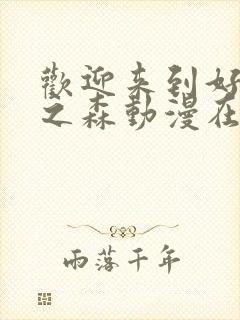 歡迎来到好
之森動漫在
雨落千年